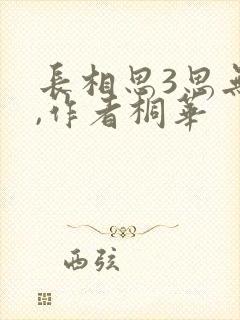 長相思3思無
,作者桐華
西弦